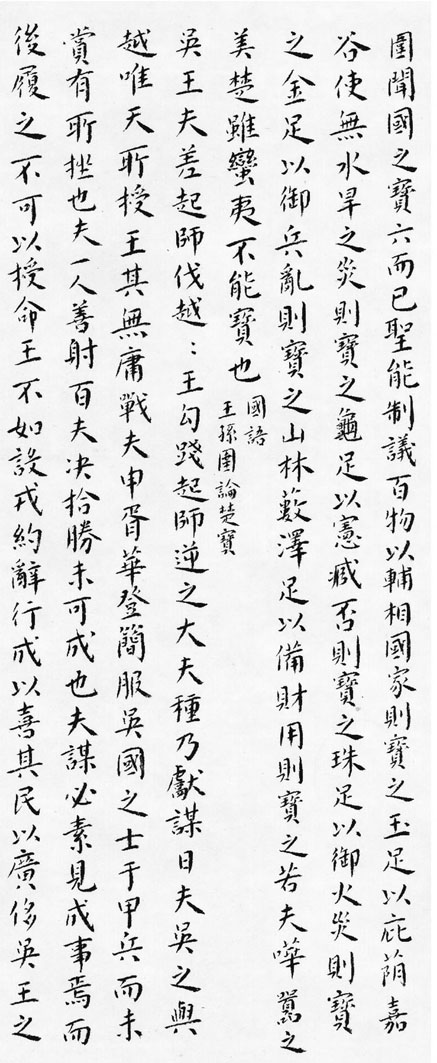 圉聞國之寶六而已聖能制議百物以輔相國家則寶之玉足以庇蔭嘉
谷使無水旱之災則寶之龜足以憲臧否則寶之珠足以御火災則寶
之金足以御兵亂則寶之山林藪澤足以備財用則寶之若夫嘩嚚之
美楚雖蠻夷不能寶也
國語
王孫圉論楚寶
吳王夫差起師伐越：王勾踐起師逆之大夫種乃獻謀曰夫吳之與
越唯天所授王其無庸戰夫申胥華登簡服吳國之士于甲兵而未
嘗有所挫也夫一人善射百夫决拾勝未可成也夫謀必素見成事焉而
後履之不可以授命王不如設戎約辭行成以喜其民以廣侈吳王之